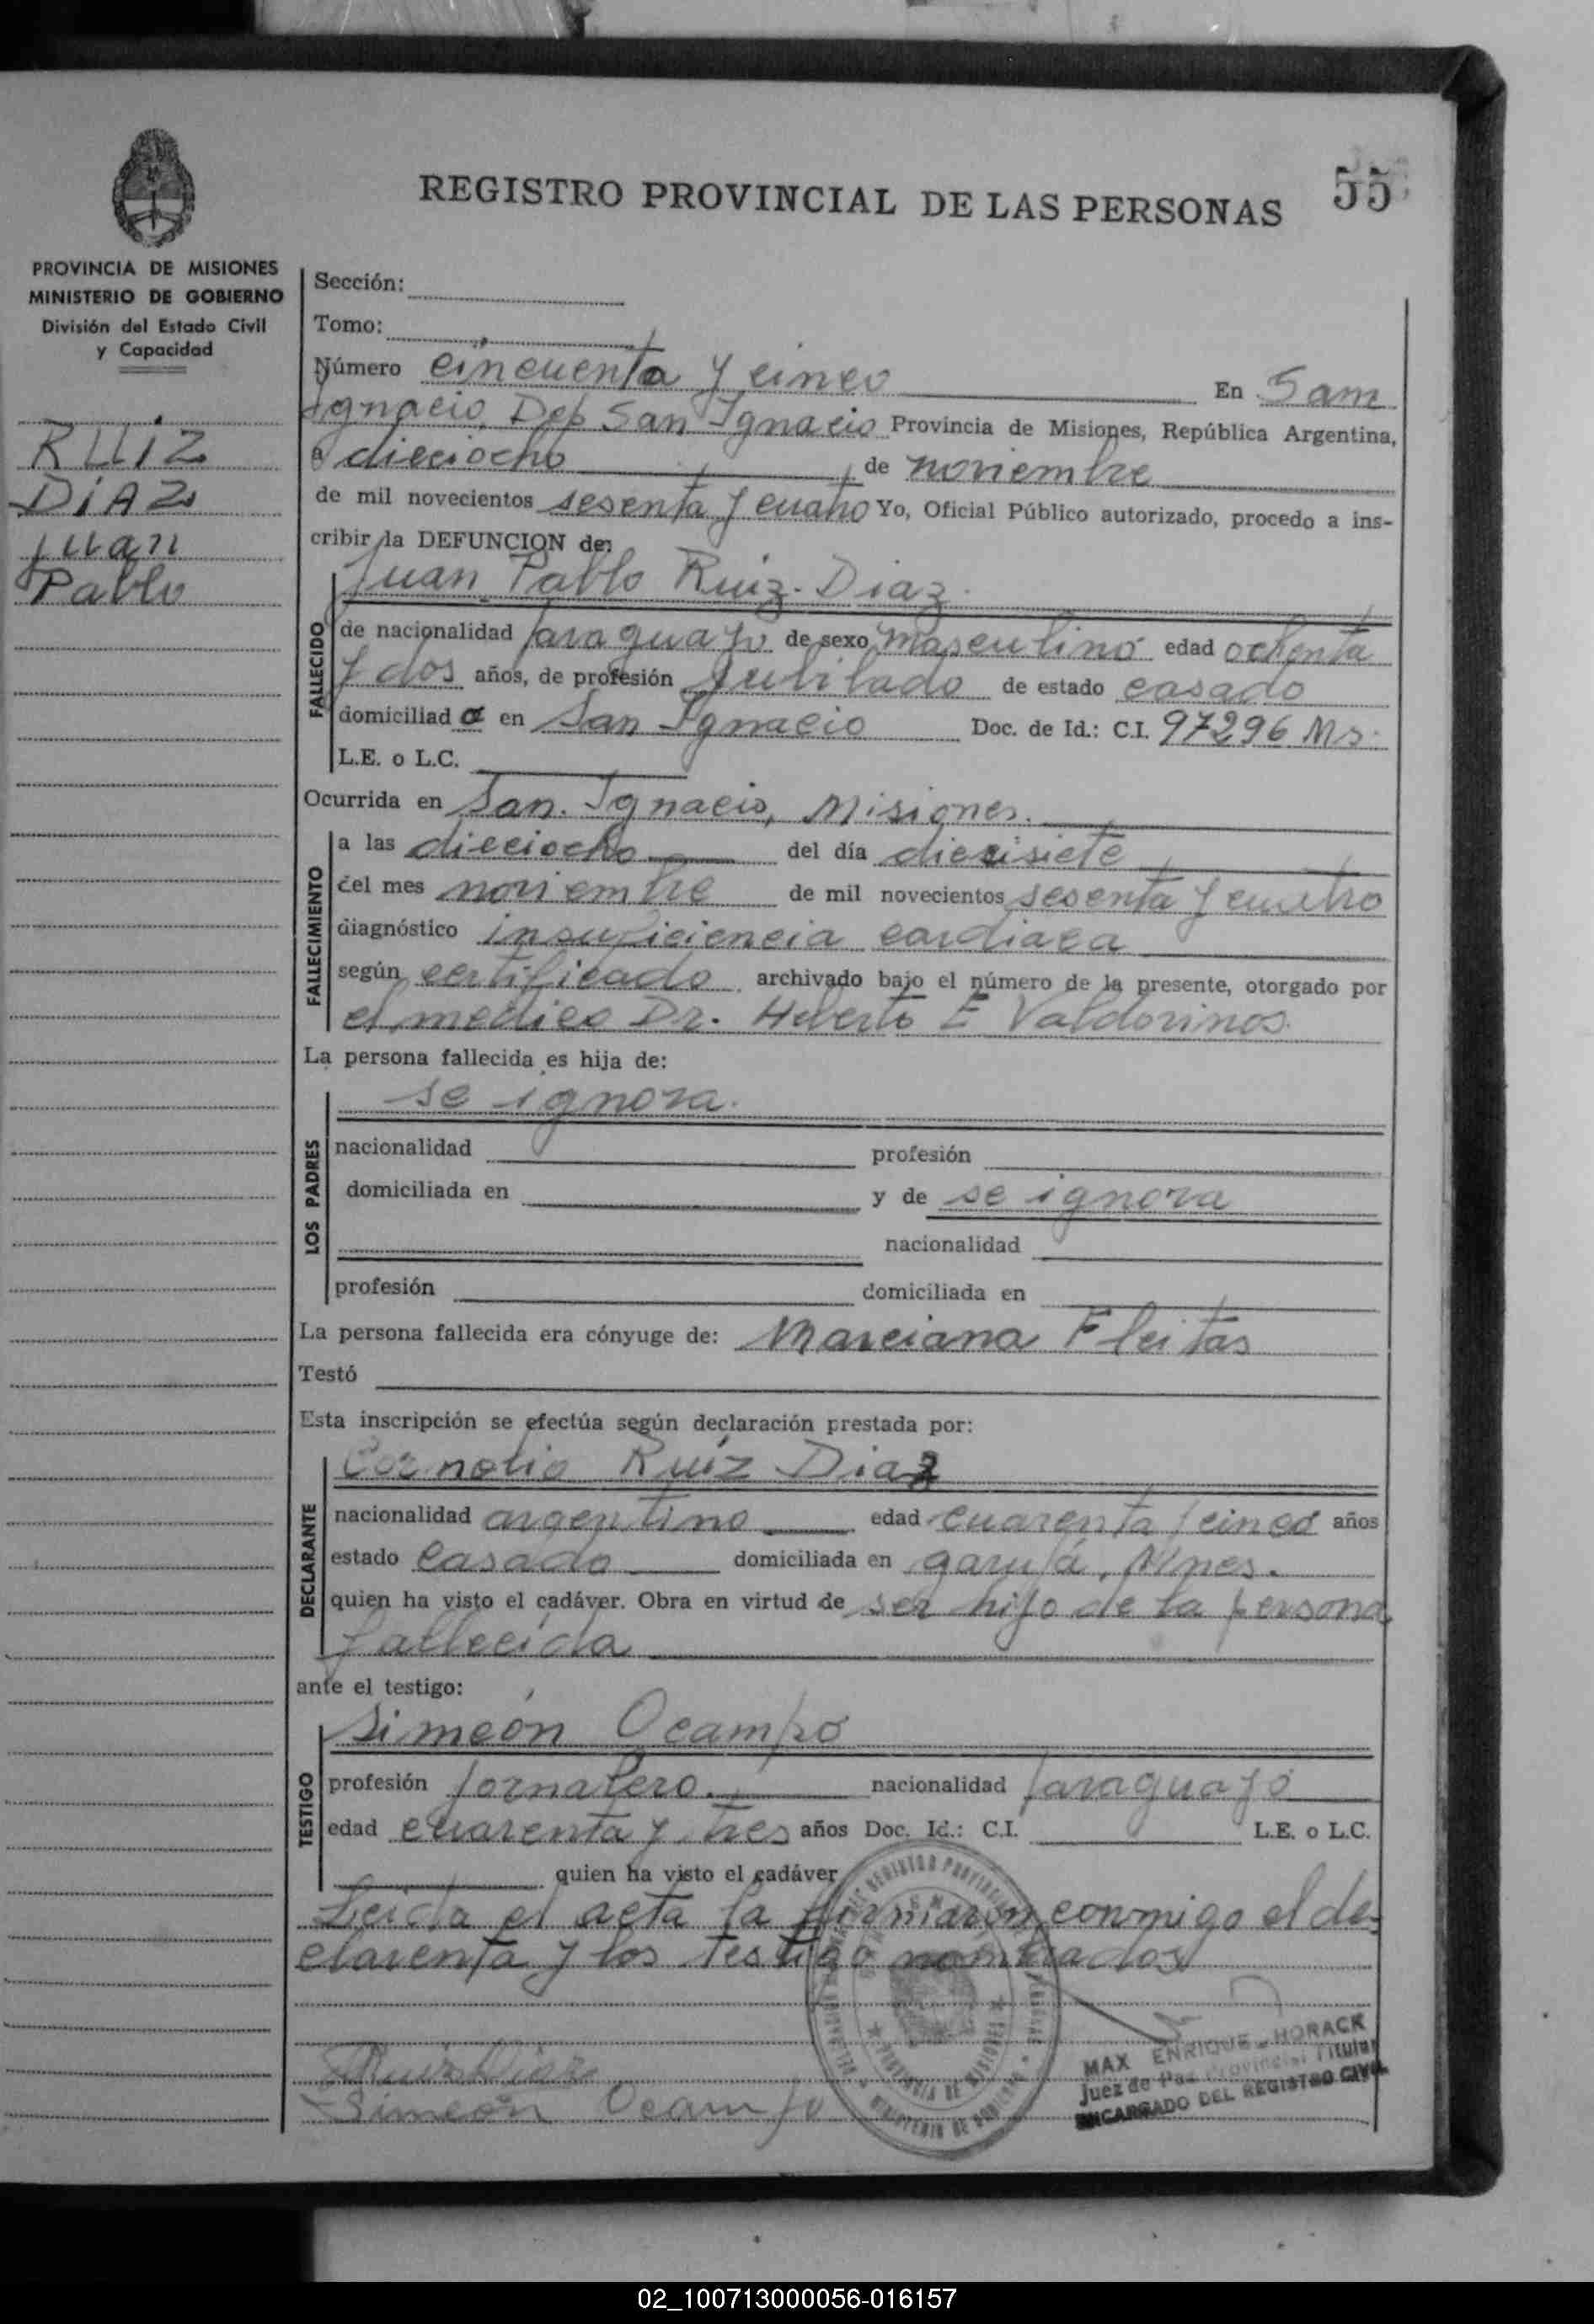 55
REGISTRO PROVINCIAL DE LAS PERSONAS
PROVINCIA DE MISIONES
MINISTERIO DE GOBIERNO
División del Estado Civil
y Capacidad
RUiZ
DiAZ
Juan
Pablo
Sección:
Tomo:
Número cincuenta y cinco En San
Ignacio, Dep San Ignacio Provincia de Misiones, República Argentina,
a dieciocho de noviembre
de mil novecientos sesenta y cuatro Yo, Oficial Público autorizado, procedo a ins-
cribir la DEFUNCION de:
Juan Pablo Ruiz-Diaz.
FALLECIDO
de nacionalidad paraguayo de sexo masculino edad ochenta
y dos años, de profesión jubilado de estado casado
domiciliad o en San Ignacio Doc. de Id.: C.I. 97296 Ms.
L.E. o L.C.
Ocurrida en San. Ignacio, Misiones.
FALLECIMIENTO
a las dieciocho del día diecisiete
del mes noviembre de mil novecientos sesenta y cuatro
diagnóstico insuficiencia cardiaca
según certificado archivado bajo el número de la presente, otorgado por
el medico Dr. Heberto E Valdorinos.
La persona fallecida es hija de:
LOS PADRES
se ignora.
nacionalidad profesión
domiciliada en y de se ignora
nacionalidad
profesión domiciliada en
La persona fallecida era cónyuge de: Marciana Fleitas
Testó
Esta inscripción se efectúa según declaración prestada por:
DECLARANTE
Cornelio Ruiz Diaz
nacionalidad argentino edad cuarenta y cinco años
estado casado domiciliada en garupá, Mnes.
quien ha visto el cadáver. Obra en virtud de ser hijo de la persona
fallecida
ante el testigo:
TESTIGO
Simeón Ocampo
profesión jornalero. nacionalidad paraguayo
edad cuarenta y tres años Doc. Id.: C.I. L.E. o L.C.
quien ha visto el cadáver
Leida el acta la firmaron conmigo el de-
clarenta y los testigo nombrados
Ruiz Diaz
Simeón Ocampo
MAX ENRIQUE HORACK
Juez de Paz Provincial Titular
ENCARGADO DEL REGISTRO CIVIL
PROVINCIA DE MISIONES
MINISTERIO DE GOBIERNO
02_100713000056-016157